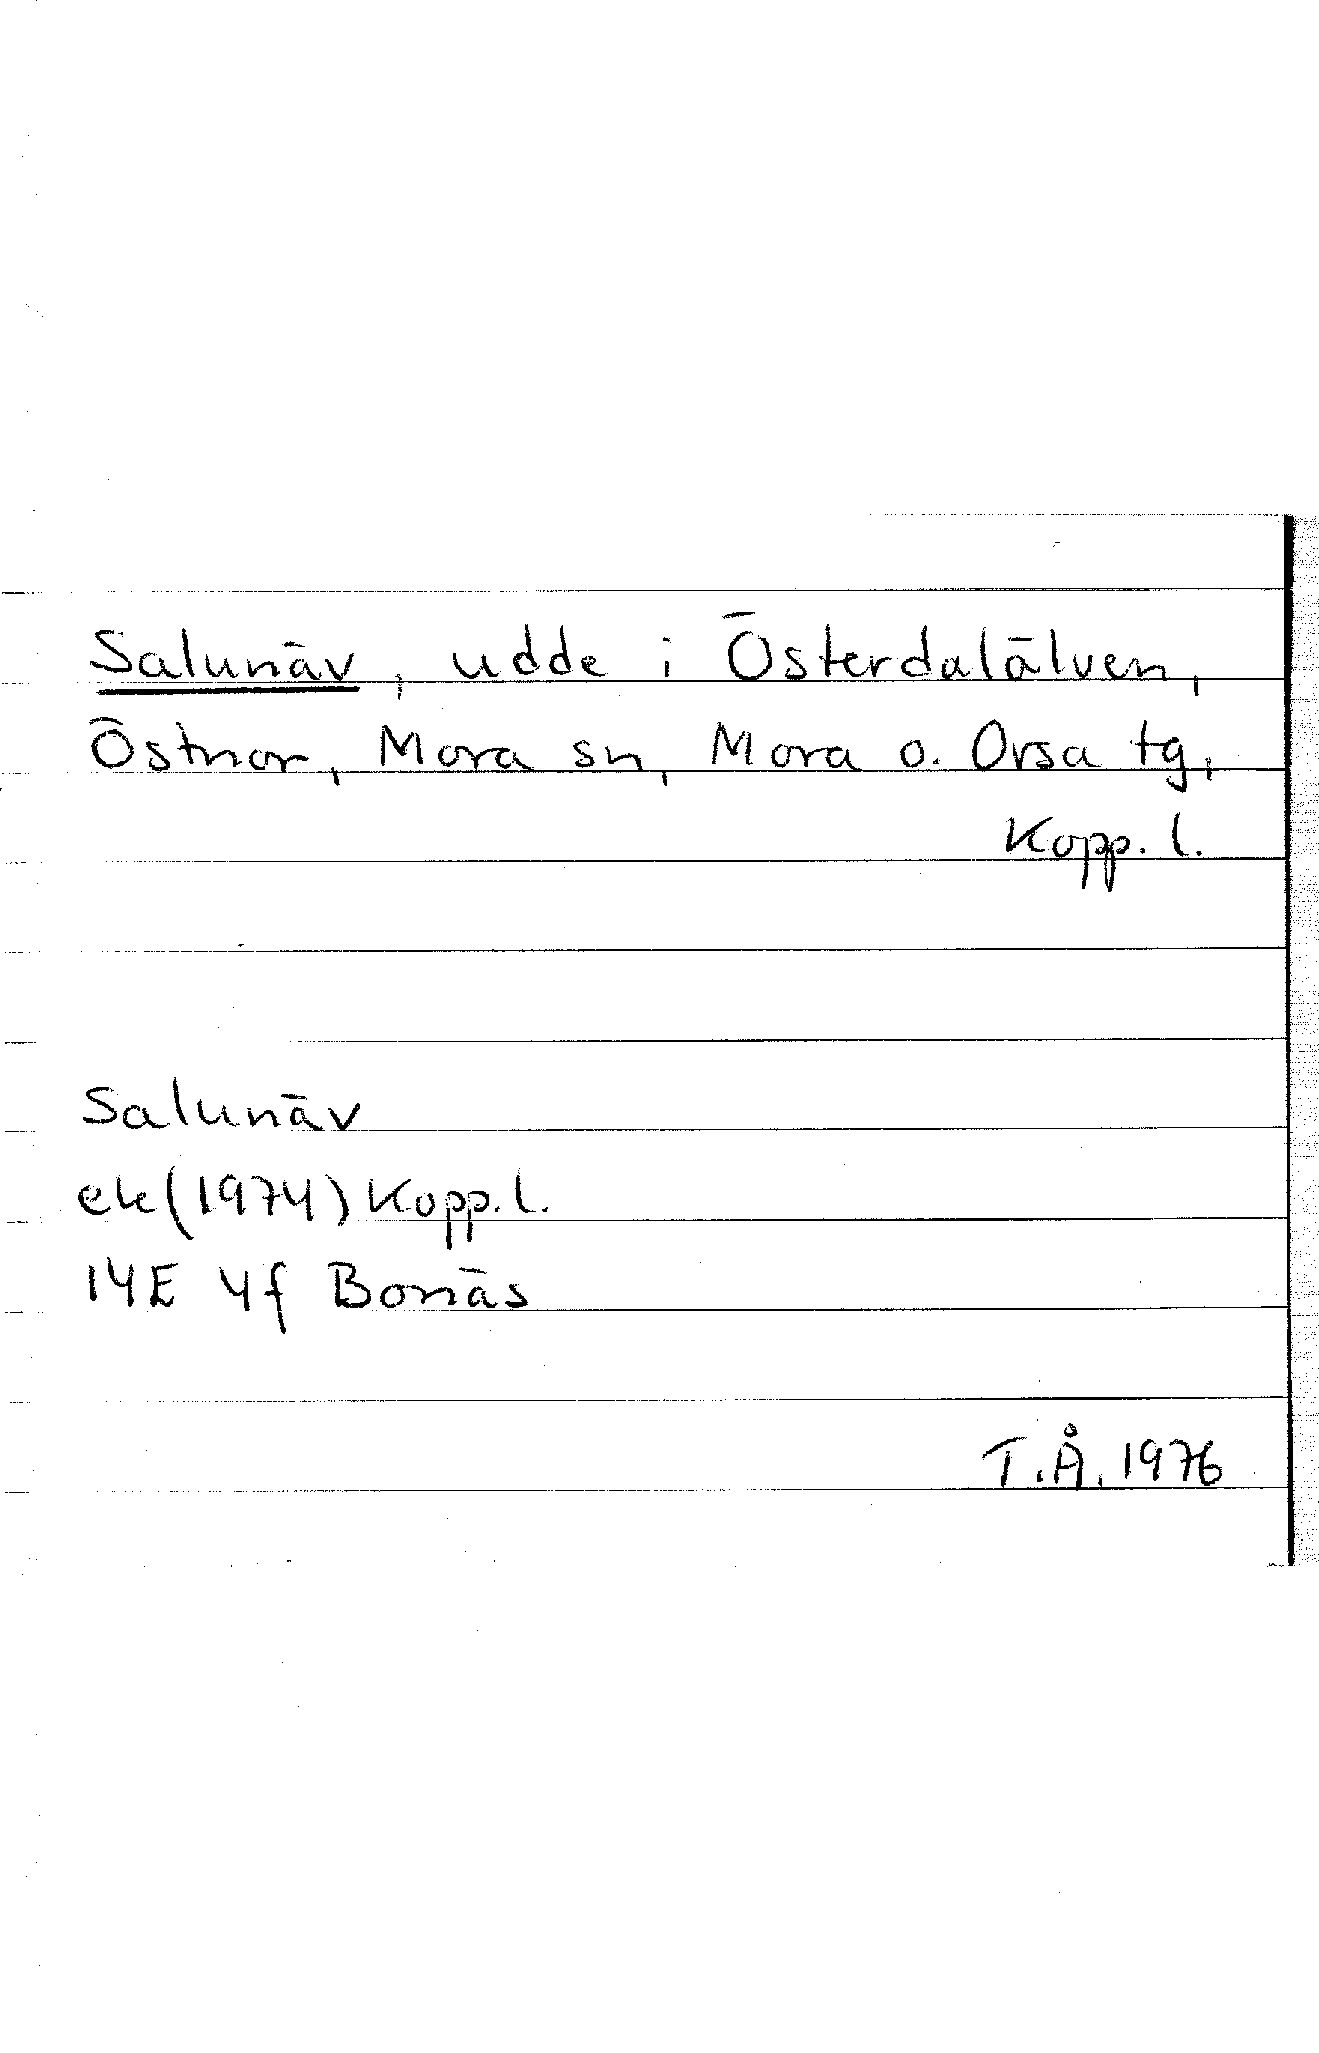 Salunäv, udde i Österdalälven,
Östnor, Mora sn, Mora o. Orsa tg,
Kopp. l.
Salunäv
ek (1974) Kopp. l.
14E 4f Bonäs
T.Å. 1976